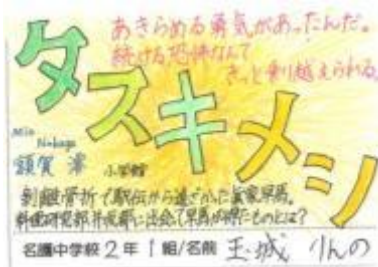 あきらめる勇気があったんだ。
続ける恐怖なんて
きっと乗り越えられる。
タスキメシ
Mio
Nukaga
額賀 澪 小学館
剥離骨折で駅伝から遠ざかった眞家早馬。
料理研究部井坂都に出会って早馬が得たものとは?
名護中学校2年1組/名前 玉城 りんの